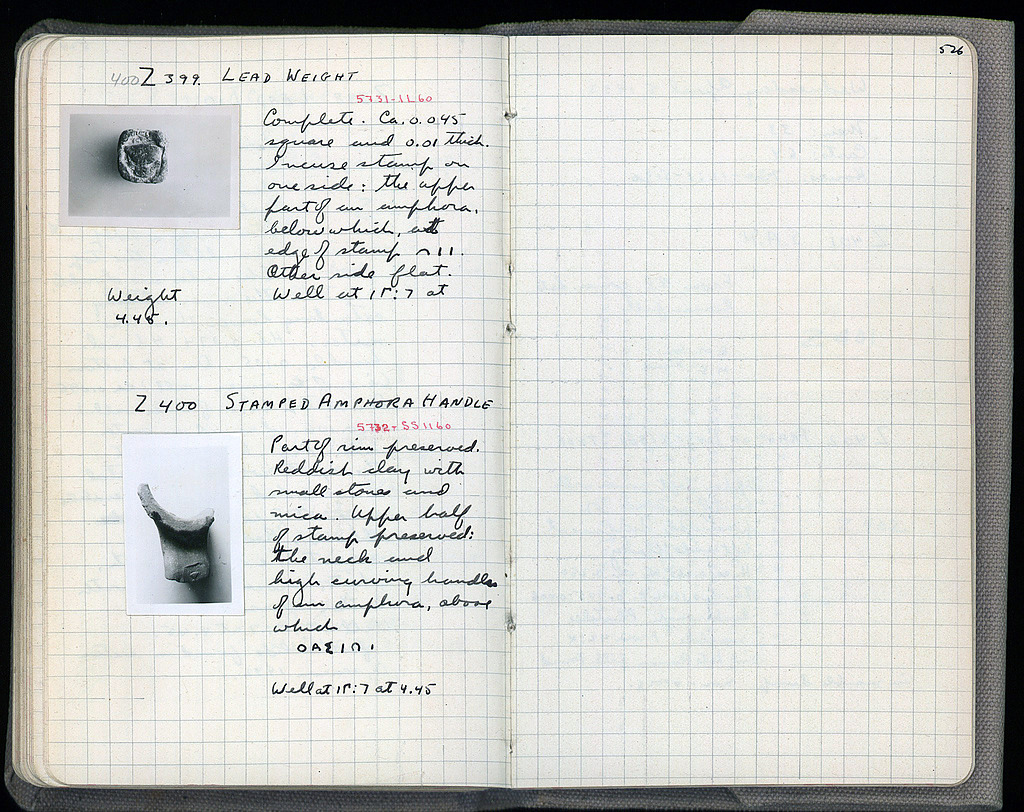 526
400 Z 399. LEAD WEIGHT
5731-IL60
Complete. Ca. 0.045
square and 0.01 thick.
Incuse stamp on
one side: the upper
part of an amphora,
below which, at
edge of stamp
Other side flat.
Well at ΙΓ:7 at
Weight
4.45.
Z 400 STAMPED AMPHORA HANDLE
5732-SS1160
Part of rim preserved.
Reddish clay with
small stones and
mica. Upper half
of stamp preserved:
the neck and
high curving handles
of an amphora, above
which
ΘΑΣΙΩ
Well at ΙΓ:7 at 4.45